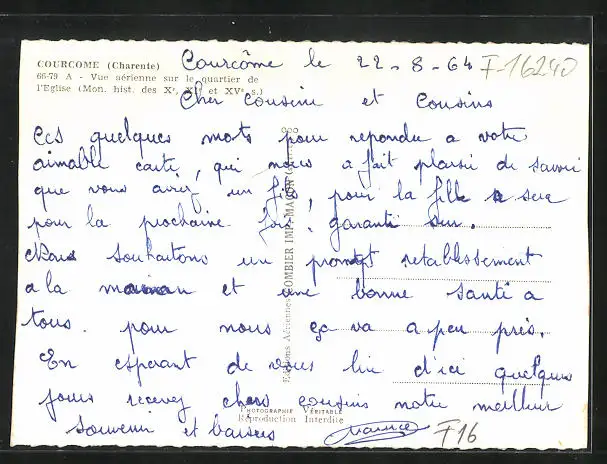 COURCOME (Charente)
66-79 A - Vue aérienne sur le quartier de
l'Eglise (Mon. hist. des Xe, XIe et XVe s.)
Courcôme le 22-8-64 F-16240
Cher cousine et cousins
Ces quelques mots pour repondre a votre
aimable carte, qui nous a fait plaisir de savoir
que vous aviez un fils, pour la fille se sera
pour la prochaine fois, garanti sur.
Nous souhaitons un prompt retablissement
a la maman et une bonne santé a
tous. pour nous ça va a peu près.
En esperant de vous lire d'ici quelques
jours recevez chers cousins notre meilleur
souvenir et baisers
Maurice F16
Editions Aériennes COMBIER IMP. MACON
PHOTOGRAPHIE VÉRITABLE
Reproduction Interdite